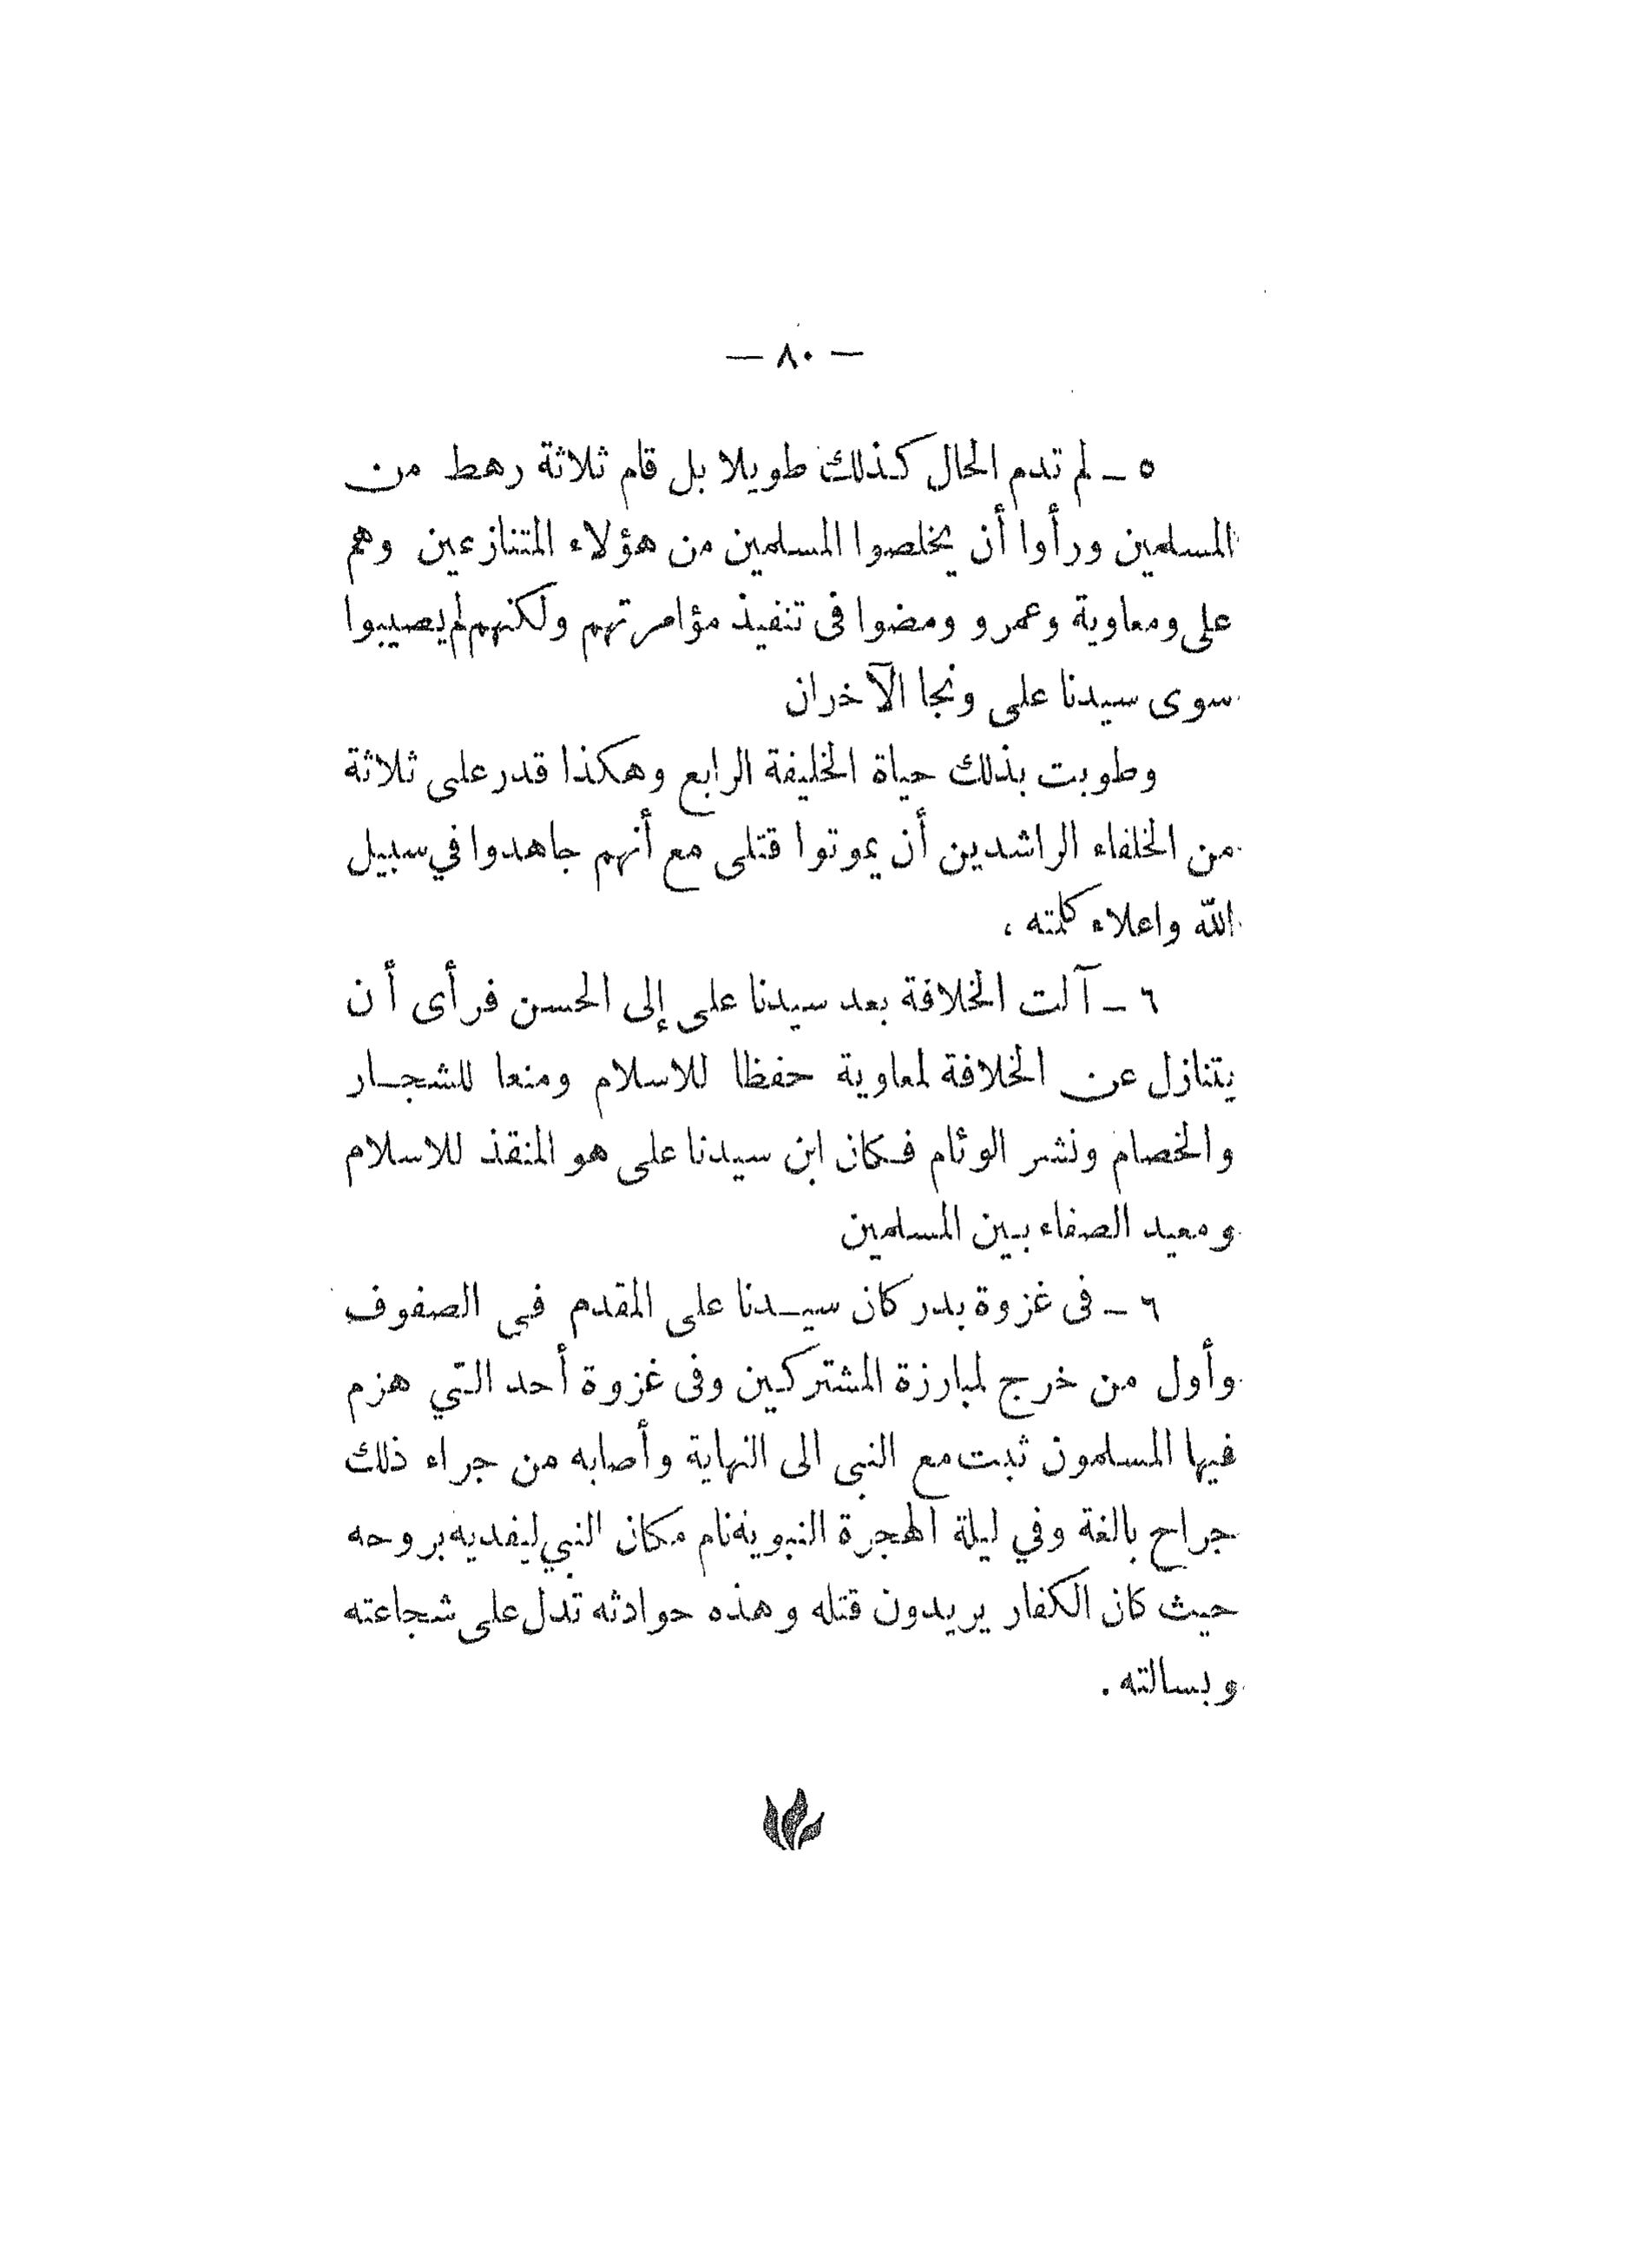 — ٨٠ —
٥ ــ لم تدم الحال كذلك طويلا بل قام ثلاثة رهط من
المسلمين ورأوا أن يخلصوا المسلمين من هؤلاء المتنازعين وهم
على ومعاوية وعمرو ومضوا فى تنفيذ مؤامرتهم ولكنهم لم يصيبوا
سوى سيدنا على ونجا الآخران
وطويت بذلك حياة الخليفة الرابع وهكذا قدر على ثلاثة
من الخلفاء الراشدين أن يموتوا قتلى مع أنهم جاهدوا في سبيل
الله واعلاء كلمته ،
٦ ــ آلت الخلافة بعد سيدنا على إلى الحسن فرأى أن
يتنازل عن الخلافة لمعاوية حفظا للاسلام ومنعا للشجار
والخصام ونشر الوئام فكان ابن سيدنا على هو المنقذ للاسلام
ومعيد الصفاء بين المسلمين
٦ ــ فى غزوة بدر كان سيدنا على المقدم فى الصفوف
وأول من خرج لمبارزة المشتركين وفى غزوة أحد التي هزم
فيها المسلمون ثبت مع النبى الى النهاية وأصابه من جراء ذلك
جراح بالغة وفي ليلة الهجرة النبوية نام مكان النبي ليفديه بروحه
حيث كان الكفار يريدون قتله وهذه حوادثه تدل على شجاعته
وبسالته .